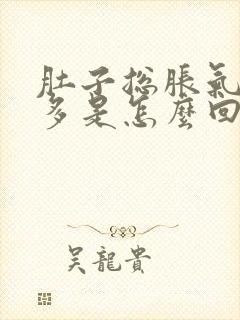 肚子總脹氣
多是怎麼回
吳龍貴